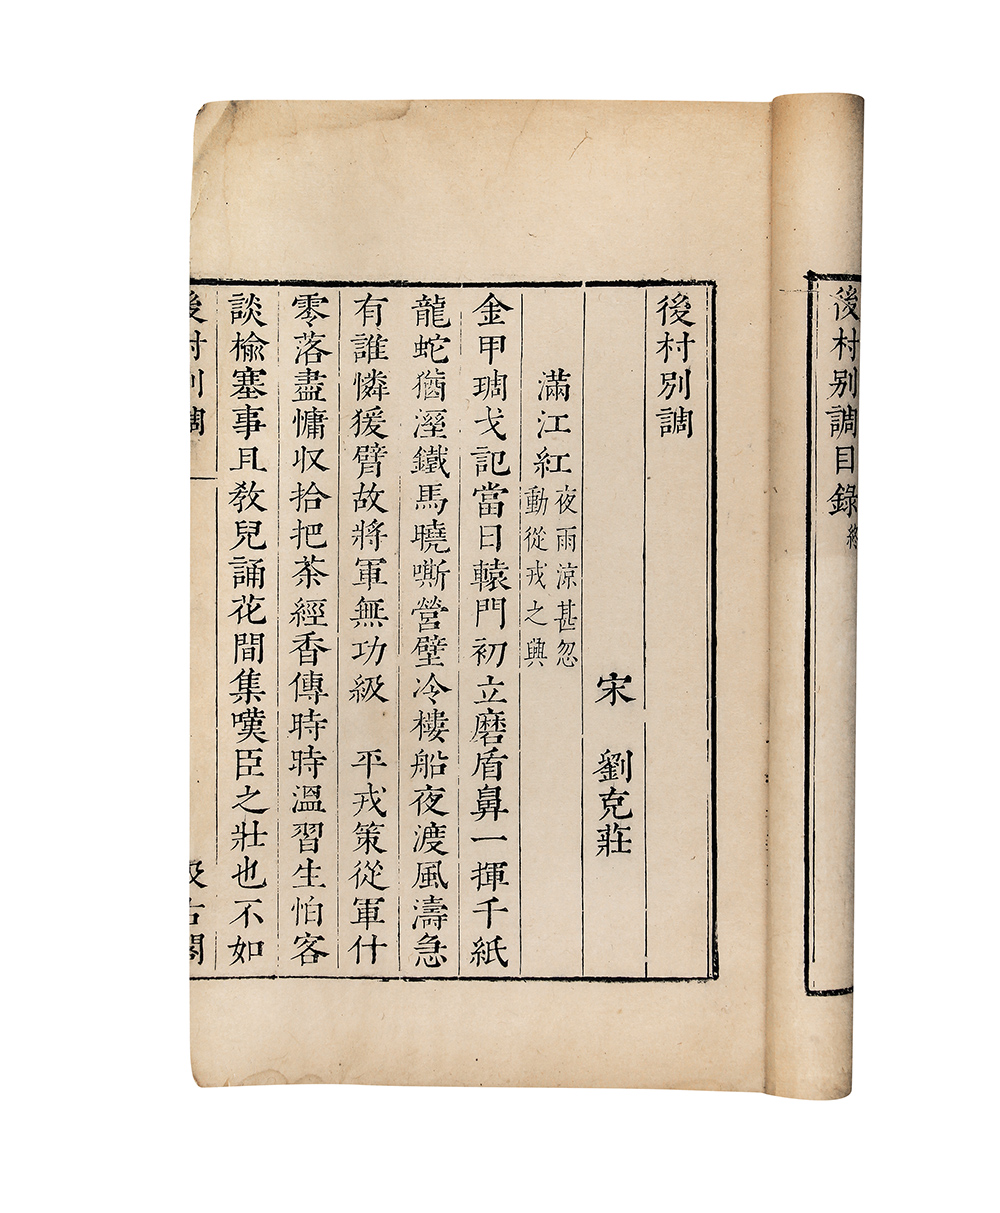 後村別調目錄終
後村別調
宋　劉克莊
滿江紅
夜雨涼甚忽
動從戎之興
金甲琱戈記當日轅門初立磨盾鼻一揮千紙
龍蛇猶溼鐵馬曉嘶營壁冷樓船夜渡風濤急
有誰憐猨臂故將軍無功級　平戎策從軍什
零落盡慵収拾把茶經香傳時時溫習生怕客
談榆塞事且教兒誦花間集嘆臣之壯也不如
後村別調
汲古閣